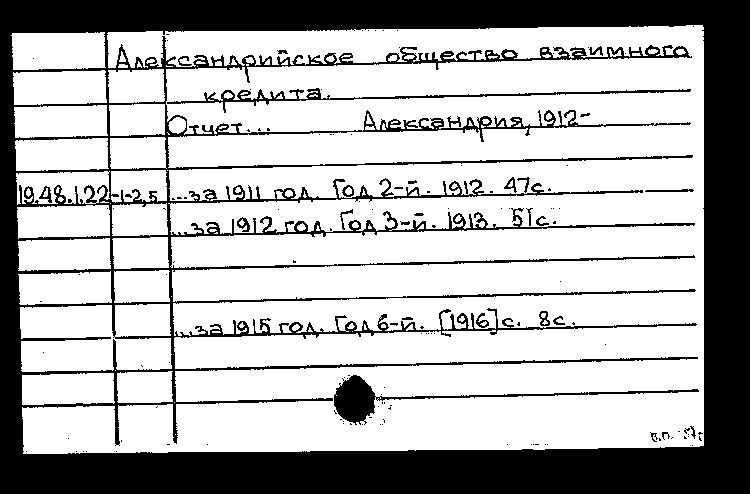 Александрийское общество взаимного
кредита.
Отчет... Александрия, 1912-
19.48.1.22-1-2,5 ...за 1911 год. Год 2-й. 1912. 47с.
...за 1912 год. Год 3-й. 1913. 51с.
...за 1915 год. Год 6-й. [1916]с. 8с.
В.П.